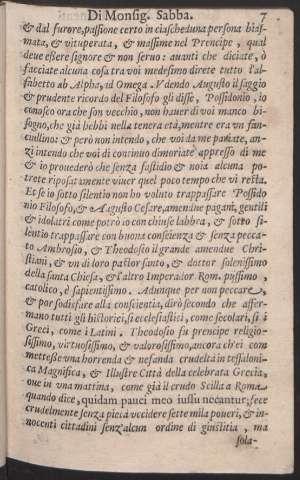 Di Monsig. Sabba. 7
& dal furore, passione certo in ciascheduna persona bias-
mata, & vituperata, & massime nel Prencipe, qual
deue essere signore & non seruo: auanti che diciate, ò
facciate alcuna cosa tra voi medesimo direte tutto l'al-
fabetto ab Alpha, id Omega. Vdendo Augusto il saggio
& prudente ricordo del Filosofo gli disse, Possidonio, io
conosco ora che son vecchio, non hauer di voi manco bi-
sogno, che già hebbi nella tenera età, mentre era vn fan-
ciullino: & però non intendo, che voi da me partate, an-
zi intendo che voi di continuo dimoriate appresso di me
& io prouederò che senza fastidio & noia alcuna po-
trete riposatamente viuer quel poco tempo che vi resta.
Et se io sotto silentio non ho voluto trappassare Possido
nio Filosofo, & Augusto Cesare, amendue pagani, gentili
& idolatri come potrò io con chiuse labbra, & sotto si-
lentio trappassare con buona conscienza & senza pecca-
to Ambrosio, & Theodosio il grande amendue Chri-
stiani, & vn di loro pastor santo, & dottor solenissimo
della santa Chiesa, & l'altro Imperador Rom. pijssimo
catolico, è sapientissimo. Adunque per non peccare,
& por sodisfare alla conscientia, dirò secondo che affer-
mano tutti gli historici, si ecclesiastici, come secolari, si i
Greci, come i Latini. Theodosio fu prencipe religio-
sissimo, virtuosissimo, & valorosissimo, ancora ch'ei com
mettesse vna horrenda & nefanda crudeltà in tessaloni-
ca Magnifica, & Illustre Città della celebrata Grecia,
oue in vna mattina, come già il crudo Scilla a Roma
quando dice, quidam pauci meo iussu necantur; fece
crudelmente senza pietà vccidere sette mila poueri, & in-
nocenti cittadini senz'alcun ordine di giustitia, ma
sola-